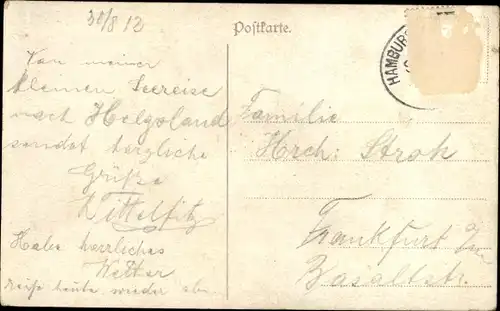 30/8 12
Postkarte.
HAMBURG
Von meiner
kleinen Seereise
nach Helgoland
sendet herzliche
Grüße
Familie
Hrch: Stroh
Frankfurt a/m
Basaltstr.
Habe herrliches
Wetter
reise heute wieder ab.